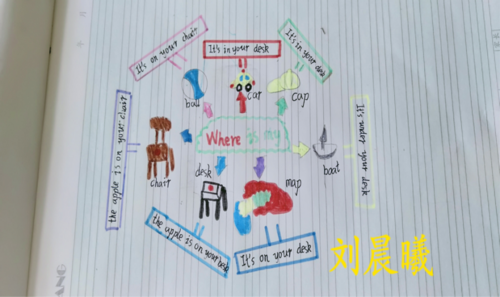 It's on your chair
It's in your desk
It's in your desk
ball
car
cap
the apple is on your chair
Where is my
It's under your desk
chair
boat
desk
map
the apple is on your
It's on your desk
刘晨曦